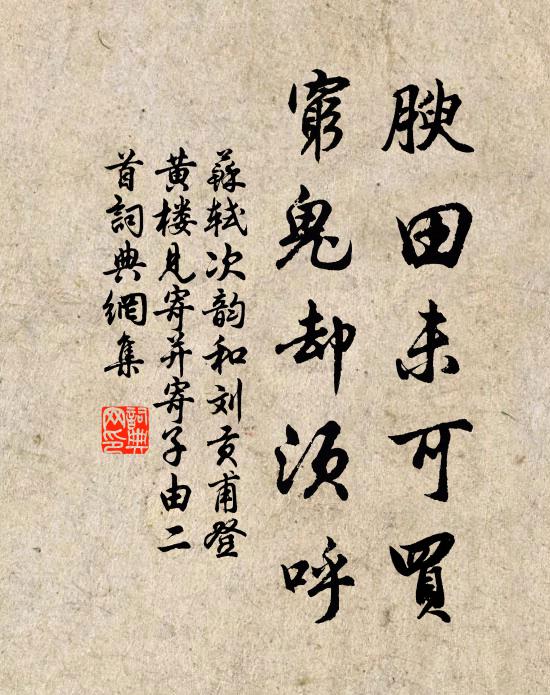 腴田未可買
窮鬼却須呼
蘇軾次韵和刘贡甫登
黄楼見寄并寄子由二
首詞典網集
詞典网印